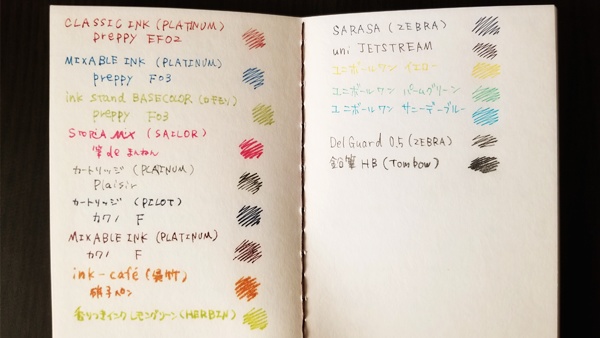 CLASSIC INK (PLATINUM)
preppy EF02
MIXABLE INK (PLATINUM)
preppy F03
ink stand BASECOLOR
preppy F03
STORiA MiX (SAILOR)
筆de まんねん
カートリッジ (PLATINUM)
Plaisir
カートリッジ (PILOT)
カクノ F
MIXABLE INK (PLATINUM)
カクノ F
ink-café (呉竹)
硝子ペン
香りつきインク レモングリーン (HERBIN)
SARASA (ZEBRA)
uni JETSTREAM
ユニボールワン イエロー
ユニボールワン パームグリーン
ユニボールワン サニーデーブルー
DelGuard 0.5 (ZEBRA)
鉛筆 HB (Tombow)